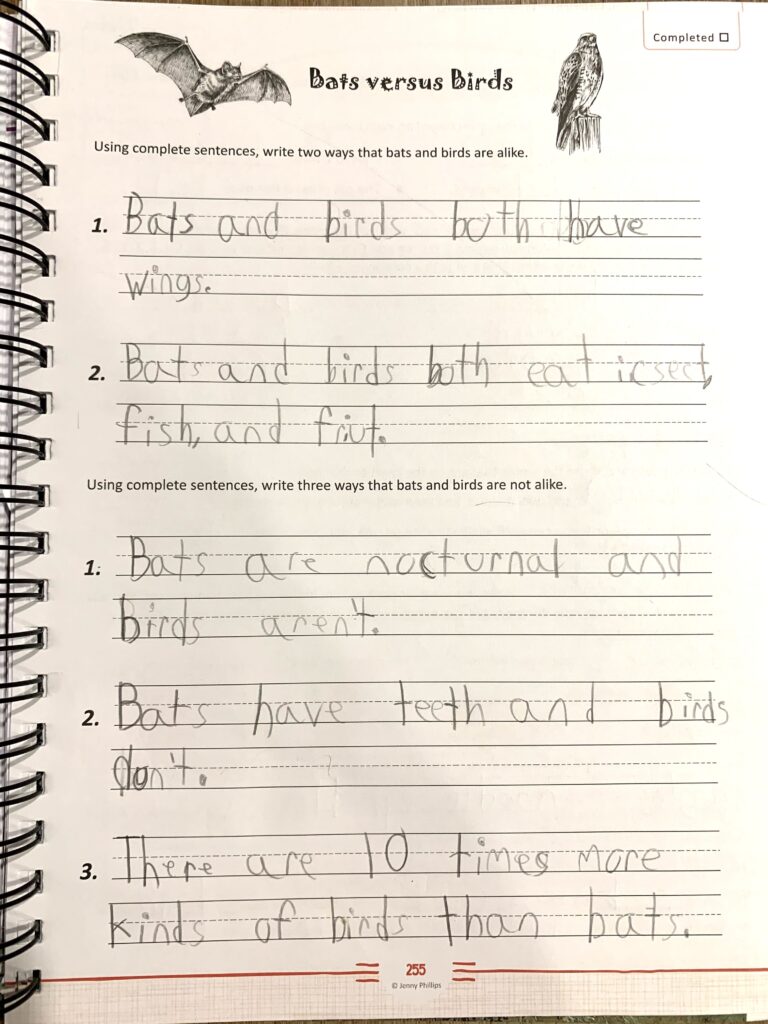 Completed ☐
Bats versus Birds
Using complete sentences, write two ways that bats and birds are alike.
1. Bats and birds both have
wings.
2. Bats and birds both eat icsect,
fish, and friut.
Using complete sentences, write three ways that bats and birds are not alike.
1. Bats are nocturnal and
birds aren't.
2. Bats have teeth and birds
don't.
3. There are 10 times more
kinds of birds than bats.
255
© Jenny Phillips